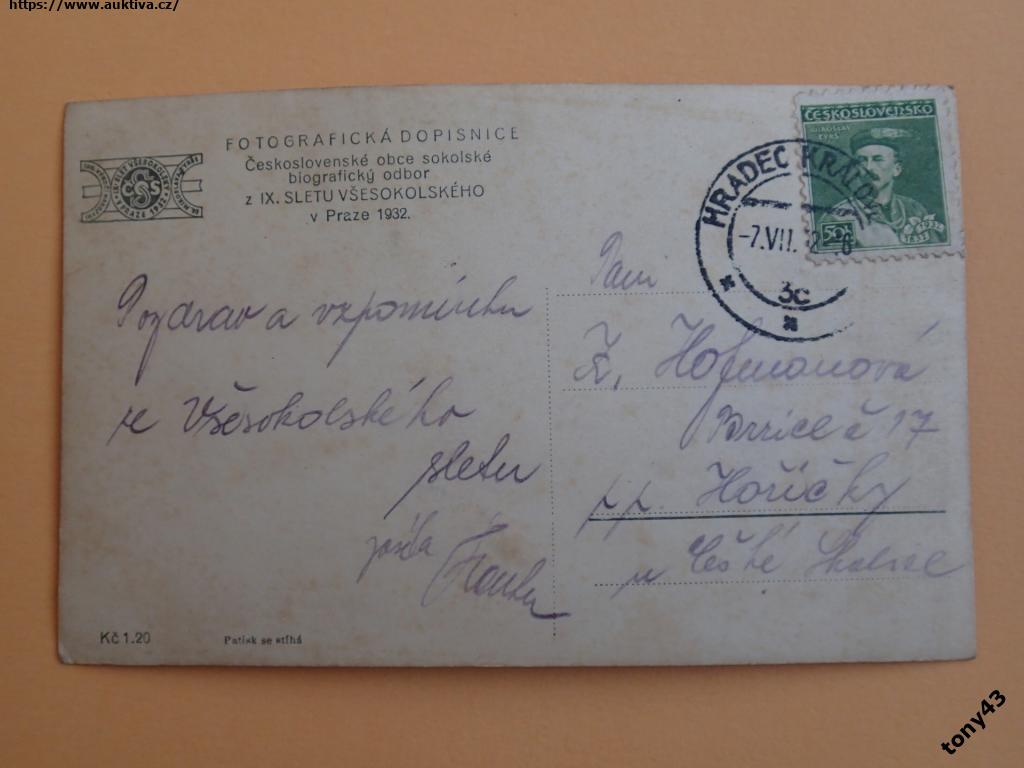 https://www.auktiva.cz/
FOTOGRAFICKÁ DOPISNICE
Československé obce sokolské
biografický odbor
z IX. SLETU VŠESOKOLSKÉHO
v Praze 1932.
ČSOS
ČESKOSLOVENSKO
MIROSLAV
TYRŠ
50h
1932
HRADEC KRÁLOVÉ
-7.VII.
3c
Pozdrav a vzpomínku
ze Všesokolského
sletu
Paní
Hofmanová
č 17
p.p. Hořičky
u České Skalice
Kč 1.20
Patisk se stíhá
tony43